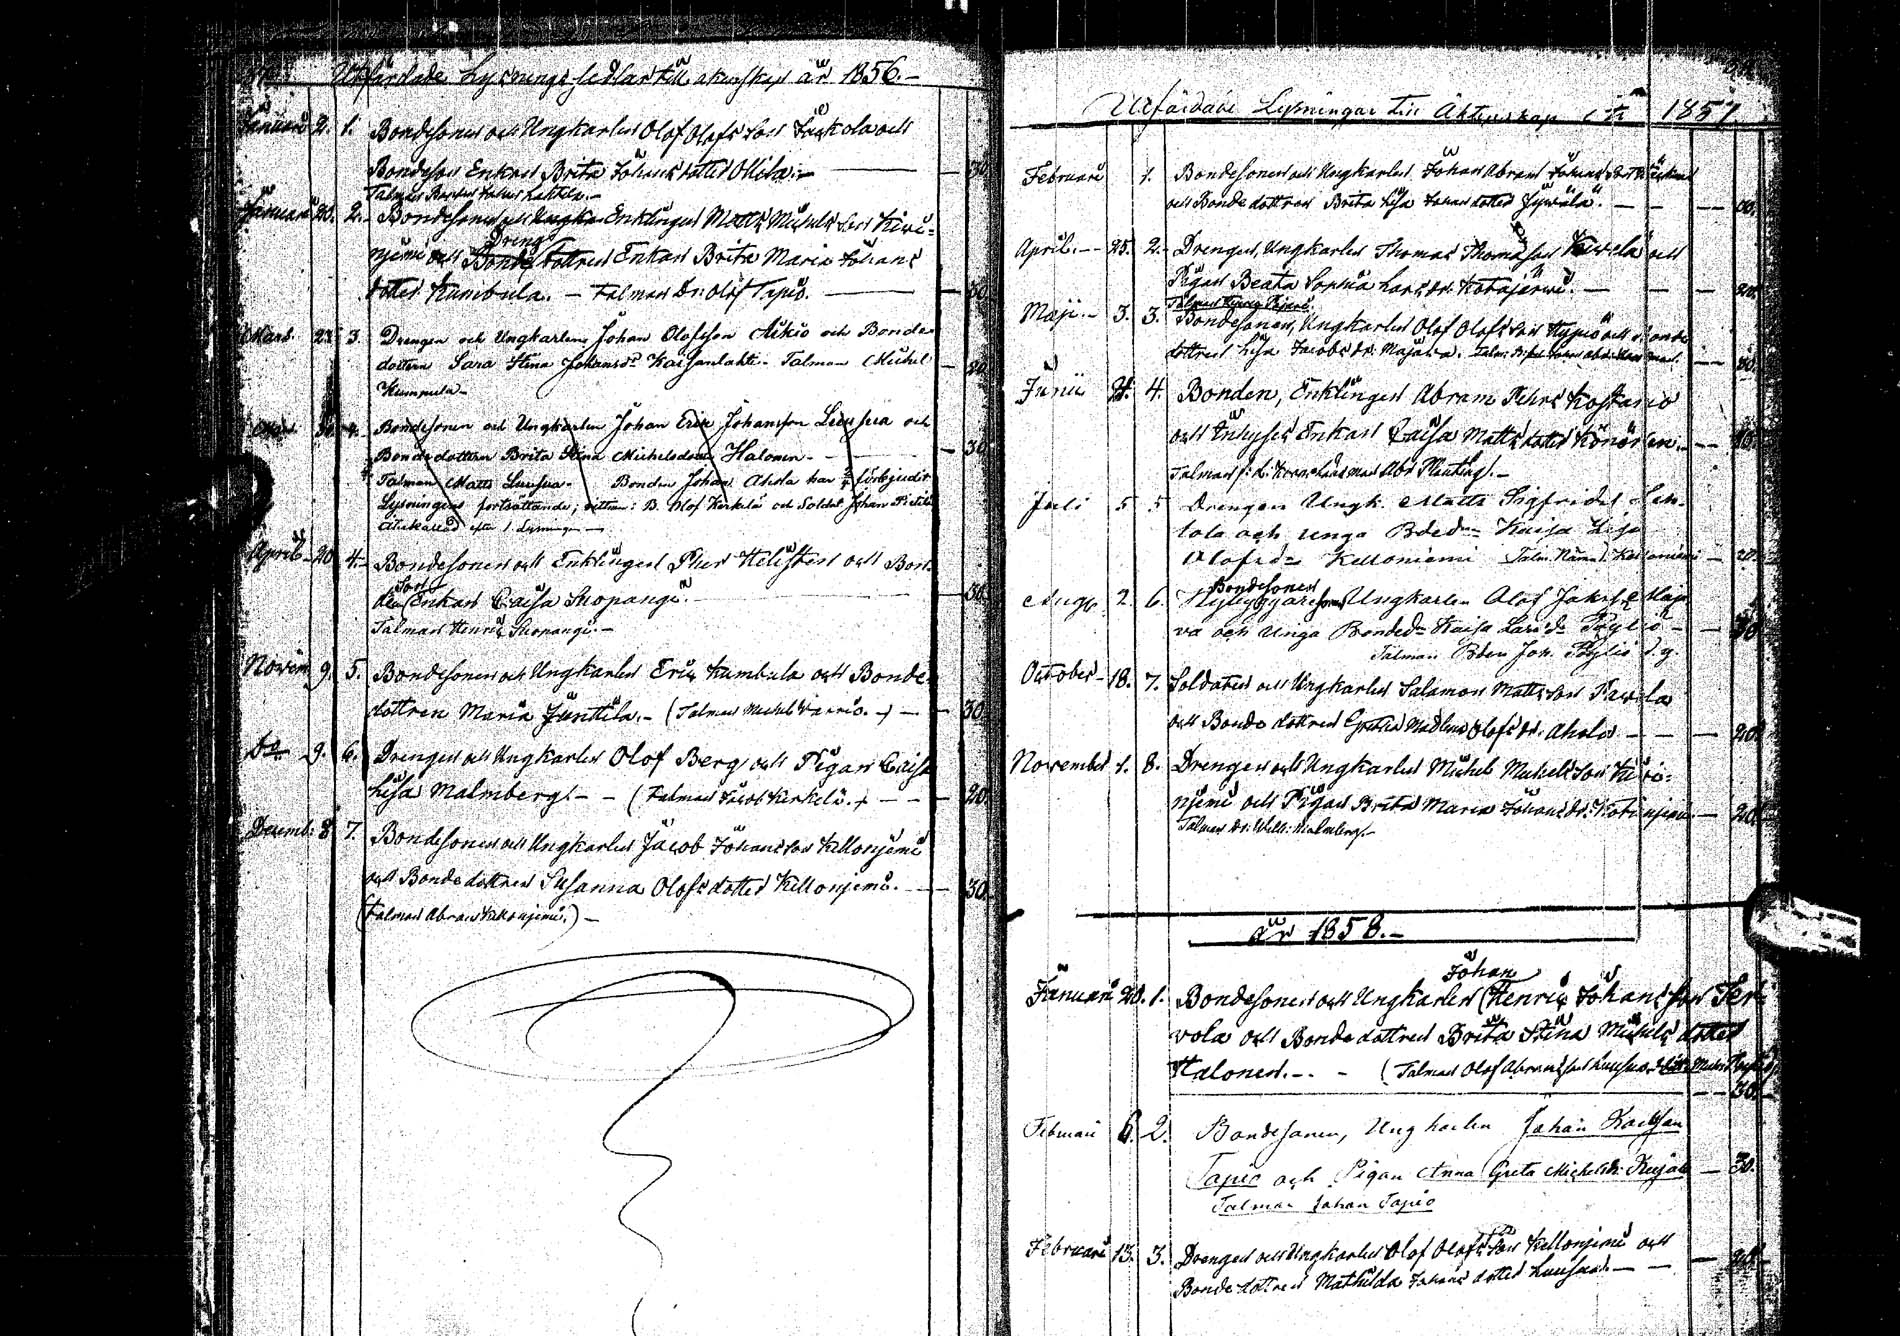 Utfärdade Lysningssedlar till äktenskap år 1856.-
Januari 2. 1. Bondesonen och Ungkarlen Olof Olofs Son och
Bondeson Enkan Brita Johans dotter Ollila.- — 30.
Talman
Januari 20. 2.- Bondesonen och Enklingen Matts Michels Son Kivi-
Dreng
njemi och Bonde dottren Enkan Brita Maria Johans
dotter Kumbula. - Talman Dr. Olof Tapio. — 30.
Mars. 23 3. Drengen och Ungkarlen Johan Olofsson Aikio och Bonde
dottern Sara Stina Johansdr Kaisanlahti. Talman Michel — 20
Kumpula-
4. Bondesonen och Ungkarlen Johan Erik Johansson Luusua och
Bondedottern Brita Stina Michelsdotter Halonen. — 30.
Talman Matts Luusua. Bonden Johan Ahola har förbjudit
Lysningens fortsättande; vittnen: B. Olof Kerkelä och Soldat Johan
efter 1. Lysningen —
April 20 4.- Bondesonen och Enklingen Pher och Bon-
Son
den Enkan Caisa Suopangi. — 30.
Talman Henric Suopangi.-
Novem 9. 5. Bondesonen och Ungkarlen Eric Kumbula och Bonde-
dottren Maria Junttila.- (Talman Michel) — 30.
Do 9. 6. Drengen och Ungkarlen Olof Berg och Pigan Caisa
Lisa Malmberg.- - (Talman Jacob Kerkelä.) - - 20.
Decemb: 8. 7. Bondesonen och Ungkarlen Jacob Johans Son Kellonjemi
och Bonde dottren Susanna Olofs dotter Kellonjemi. — 30.
(Talman Abram Kellonjemi.) -
Utfärdade Lysningar till Äktenskap 1857.
Februari 1. Bondesonen och Ungkarlen Johan Abram Johans Son
och Bonde dottren Brita Lisa Johans dotter Jywälä. - - -
April.- 25. 2.- Drengen, Ungkarlen Thomas Thomasson Kivelä och
Pigan Beata Sophia Lars dr. Katajärwi. - - 20.
Talman
Maji.- 3. 3. Bondesonen, Ungkarlen Olof Olofs Son och Bonde
dottren Lisa Jacobs dr. Majava. — 30.
Junii 21. 4. Bonden, Enklingen Abram Pehrs Koskamo
och Inhyses Enkan Caisa Matts dotter Könönen. -
Talman
Juli 5 5 Drengen Ungk. Matts Sigfridss
tola och unga Bdedr Kaisa Lisa
Olofsdr Kelloniemi — 20.
Bondesonen
Aug. 2. 6. Ungkarlen Olof Jakobss Maja
va och unga Bondedr Kaisa Larsdr Pöyliö - — 30
Talman Bden Joh. Pöyliö d.y.
October 18. 7. Soldaten och Ungkarlen Salamon Matts Son Pavola
och Bonde dottren Greta Madlena Olofs dr. Ahola - - — 20.
November 1. 8. Drengen och Ungkarlen Michel Michels Son Kivi-
njemi och Pigan Brita Maria Johans dr. — 20.
Talman Dr: Malmberg.-
år 1858.-
Johan
Januari 20. 1. Bondesonen och Ungkarlen Henric Johans Son Ter-
vola och Bonde dottren Brita Stina Michels dotter
Halonen.- - (Talman Olof Abrams Son Luusua
30.
Februari 6. 2. Bondesonen, Ungkarlen Johan Karlsson
Tapio och Pigan Anna Greta Michelsdr. Kujala — 30.
Talman Johan Tapio
Februari 13. 3. Drengen och Ungkarlen Olof Olofs Son Kellonjemi och
Bonde dottren Mathilda Johans dotter Luusua. - - 20.